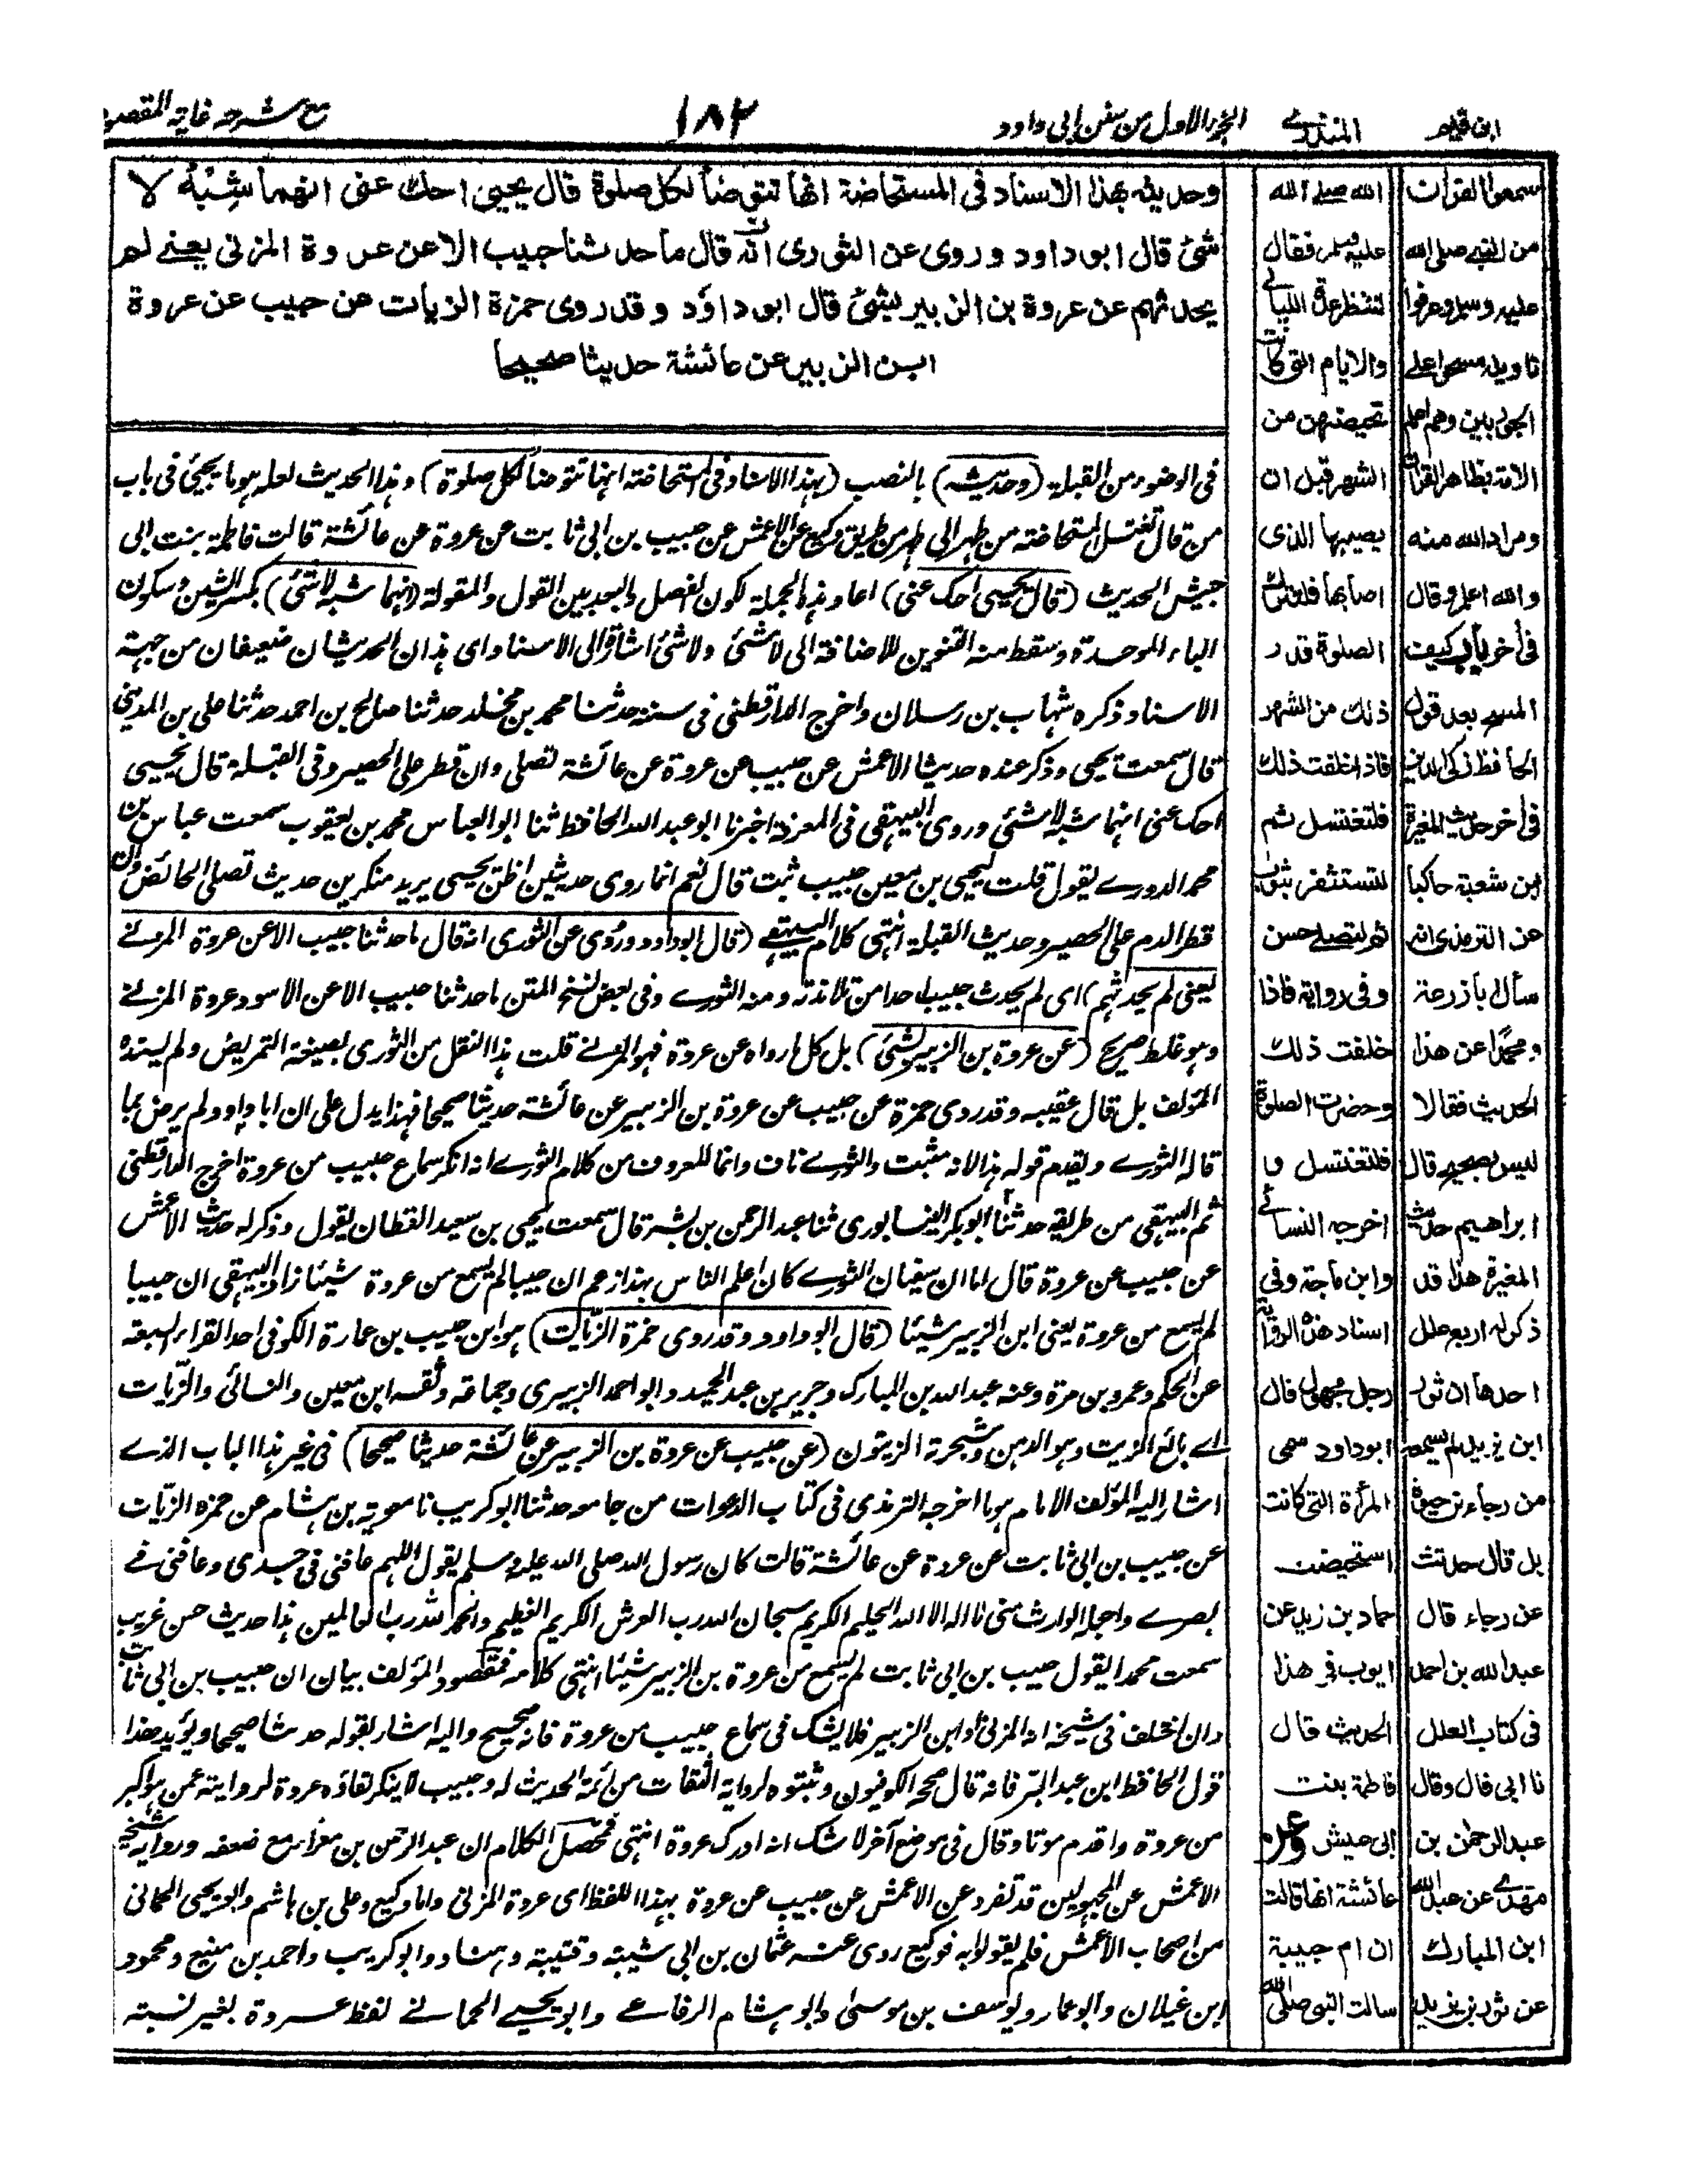 ابن قيم
المنذري
الجزء الاول من سنن ابي داود
١٨٢
مع شرحه غاية المقصود
وحديثه بهذا الاسناد في المستحاضة انها تتوضأ لكل صلوة قال يحيى احك عنى انهما شِبْهُ لا
شئ قال ابو داود وروى عن الثوري انه قال ما حدثنا حبيب الا عن عروة المزني يعني لم
يحدثهم عن عروة بن الزبير بشئ قال ابو داود وقد روى حمزة الزيات عن حبيب عن عروة
ابن الزبير عن عائشة حديثا صحيحا
في الوضوء من القبلة (وحديثه) بالنصب (بهذا الاسناد في المستحاضة انها تتوضأ لكل صلوة) وهذا الحديث لعله هو ما يجيئ في باب
من قال تغتسل المستحاضة من طهر الى طهر من طريق وكيع عن الاعمش عن حبيب بن ابي ثابت عن عروة عن عائشة قالت فاطمة بنت ابي
حبيش الحديث (قال يحيى احك عني) اعاد هذه الجملة لكون الفصل والبعد بين القول والمقولة (انهما شبه لا شئ) بكسر الشين وسكون
الباء الموحدة وسقط منه التنوين للاضافة الى لا شئ ولا شئ اشارة الى الاسناد اى هذان الحديثان ضعيفان من جهة
الاسناد ذكره شهاب بن رسلان واخرج الدارقطني في سننه حدثنا محمد بن مخلد حدثنا صالح بن احمد حدثنا علي بن المديني
قال سمعت يحيى وذكر عنده حديثا الاعمش عن حبيب عن عروة عن عائشة تصلى وان قطر على الحصير وفى القبلة قال يحيى
احك عنى انهما شبه لا شئ وروى البيهقى فى المعرفة اخبرنا ابو عبد الله الحافظ ثنا ابو العباس محمد بن يعقوب سمعت عباس بن
محمد الدوري يقول قلت ليحيى بن معين حبيب ثبت قال نعم انما روى حديثين اظن يحيى يريد منكرين حديث تصلى الحائض وان
قطر الدم على الحصير وحديث القبلة انتهى كلام البيهقي (قال ابو داود وروى عن الثوري انه قال ما حدثنا حبيب الا عن عروة المزني
يعنى لم يحدثهم) اى لم يحدث حبيب احدا من تلامذته ومنه الثوري وفى بعض نسخ المتن ما حدثنا حبيب الا عن الاسود عروة المزني
وهو غلط صريح (عن عروة بن الزبير بشئ) بل كل ما رواه عن عروة فهو المزني قلت هذا النقل من الثورى بصيغة التمريض ولم يسنده
المؤلف بل قال عقيبه وقد روى حمزة عن حبيب عن عروة بن الزبير عن عائشة حديثا صحيحا فهذا يدل على ان ابا داود لم يرض بما
قاله الثوري ويقدم قوله هذا لانه مثبت والثوري ناف وانما المعروف من كلام الثوري انه انكر سماع حبيب من عروة اخرج الدارقطنى
ثم البيهقى من طريقه حدثنا ابو بكر النيسابورى ثنا عبد الرحمن بن بشر قال سمعت يحيى بن سعيد القطان يقول وذكر له حديث الاعمش
عن حبيب عن عروة قال اما ان سفيان الثوري كان اعلم الناس بهذا زعم ان حبيبا لم يسمع من عروة شيئا زاد البيهقى ان حبيبا
لم يسمع من عروة يعنى ابن الزبير شيئا (قال ابو داود وقد روى حمزة الزيات) هو ابن حبيب بن عمارة الكوفى احد القراء السبعة
عن الحكم وعمرو بن مرة وعنه عبد الله بن المبارك وجرير بن عبد الحميد وابو احمد الزبيرى وجماعة وثقه ابن معين والنسائى والزيات
اي بائع الزيت وهو الدهن وشجرة الزيتون (عن حبيب عن عروة بن الزبير عن عائشة حديثا صحيحا) فى غير هذا الباب الذي
اشار اليه المؤلف الامام هو ما اخرجه الترمذى فى كتاب الدعوات من جامعه حدثنا ابو كريب نا معوية بن هشام عن حمزة الزيات
عن حبيب بن ابى ثابت عن عروة عن عائشة قالت كان رسول الله صلى الله عليه وسلم يقول اللهم عافنى فى جسدى وعافنى في
بصري واجعله الوارث منى لا اله الا الله الحليم الكريم سبحان الله رب العرش الكريم العظيم والحمد لله رب العالمين هذا حديث حسن غريب
سمعت محمدا يقول حبيب بن ابى ثابت لم يسمع من عروة بن الزبير شيئا انتهى كلامه فمقصود المؤلف بيان ان حبيب بن ابى ثابت
وان اختلف فى شيخه انه المزنى او ابن الزبير فلا يشك فى سماع حبيب من عروة فانه صحيح واليه اشار بقوله حديثا صحيحا ويؤيد هذا
قول الحافظ ابن عبد البر فانه قال صححه الكوفيون وثبتوه لرواية الثقات من ائمة الحديث له وحبيب لا ينكر لقاؤه عروة لروايته عمن هو اكبر
من عروة واقدم موتا وقال فى موضع آخر لا شك انه ادرك عروة انتهى فمحصل الكلام ان عبد الرحمن بن مغراء مع ضعفه ورواية شيخه
الاعمش عن المجهولين قد تفرد عن الاعمش عن حبيب عن عروة بهذا اللفظ اى عروة المزنى واما وكيع وعلى بن هاشم وابو يحيى الحمانى
من اصحاب الاعمش فلم يقولوا به فوكيع روى عنه عثمان بن ابى شيبة وقتيبة وهناد وابو كريب واحمد بن منيع ومحمود
ابن غيلان وابو عمار ويوسف بن موسى وابو هشام الرفاعي وابو يحيي الحماني لفظ عروة بغير نسبته
الله صلى الله
عليه وسلم فقال
لتنظر عدة الليالي
والايام التى كانت
تحيضهن من
الشهر قبل ان
يصيبها الذى
اصابها فلتترك
الصلوة قدر
ذلك من الشهر
فاذا خلفت ذلك
فلتغتسل ثم
لتستثفر بثوب
ثم لتصلي حسن
وفى رواية فاذا
خلفت ذلك
وحضرت الصلوة
فلتغتسل و
اخرجه النسائي
وابن ماجة وفى
اسناد هذه الرواية
رجل مجهول قال
ابو داود سمى
المرأة التى كانت
استحيضت
حماد بن زيد عن
ايوب في هذا
الحديث قال
فاطمة بنت
ابى حبيش وعن
عائشة انها قالت
ان ام حبيبة
سالت النبى صلى الله
سمعوا القرآن
من النبي صلى الله
عليه وسلم وعرفوا
تاويله مسحوا على
الجوربين وهم اعلم
الامة بظاهر القرآن
ومراد الله منه
والله اعلم وقال
فى آخر باب كيف
المسح بعد قول
الحافظ زكى الدين
فى آخر حديث المغيرة
بن شعبة حاكيا
عن الترمذى انه
سأل ابا زرعة
ومحمدا عن هذا
الحديث فقالا
ليس بصحيح قال
ابراهيم حديث
المغيرة هذا قد
ذكر له اربع علل
احدها ان ثور
ابن يزيد لم يسمعه
من رجاء بن حيوة
بل قال حدثت
عن رجاء قال
عبد الله بن احمد
فى كتاب العلل
نا ابى قال وقال
عبد الرحمن بن
مهدي عن عبد الله
ابن المبارك
عن ثور بن يزيد